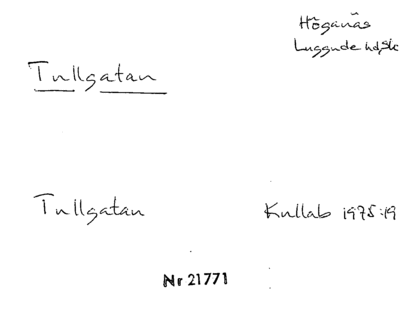 Höganäs
Luggude hd, Sk
Tullgatan
Tullgatan Kullab 1975:19
Nr 21771